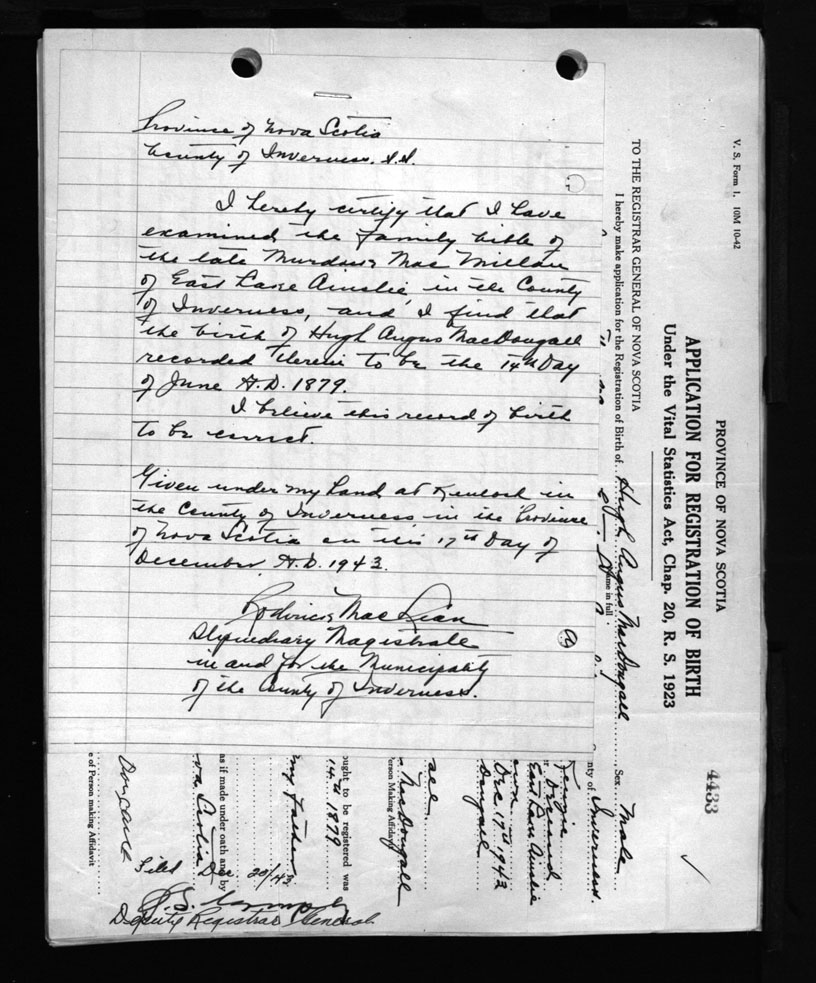 Province of Nova Scotia
County of Inverness. S.S.
I hereby certify that I have
examined the family bible of
the late Murdoch MacMillan
of East Lake Ainslie, in the County
of Inverness, and I find that
the birth of Hugh Angus MacDougall
recorded therein to be the 14th Day
of June A.D. 1879.
I believe this record of birth
to be correct.
Given under my hand at Kenloch in
the County of Inverness in the Province
of Nova Scotia on this 17th Day of
December A.D. 1943.
Roderick MacLean
Stipendiary Magistrate
in and for the Municipality
of the County of Inverness.
V. S. Form 1. 10M 10-42
PROVINCE OF NOVA SCOTIA
APPLICATION FOR REGISTRATION OF BIRTH
Under the Vital Statistics Act, Chap. 20, R. S. 1923
4433
TO THE REGISTRAR GENERAL OF NOVA SCOTIA
I hereby make application for the Registration of Birth of Hugh Angus MacDougall Sex Male
ame in full
nty of Inverness.
East Lake Ainslie
Dec 17th 1943
Dougall
MacDougall
erson Making Affidavit
ought to be registered was
14th 1879
my Father
as if made under oath and by
va Scotia
Filed Dec 20/43
Deputy Registrar General
e of Person making Affidavit